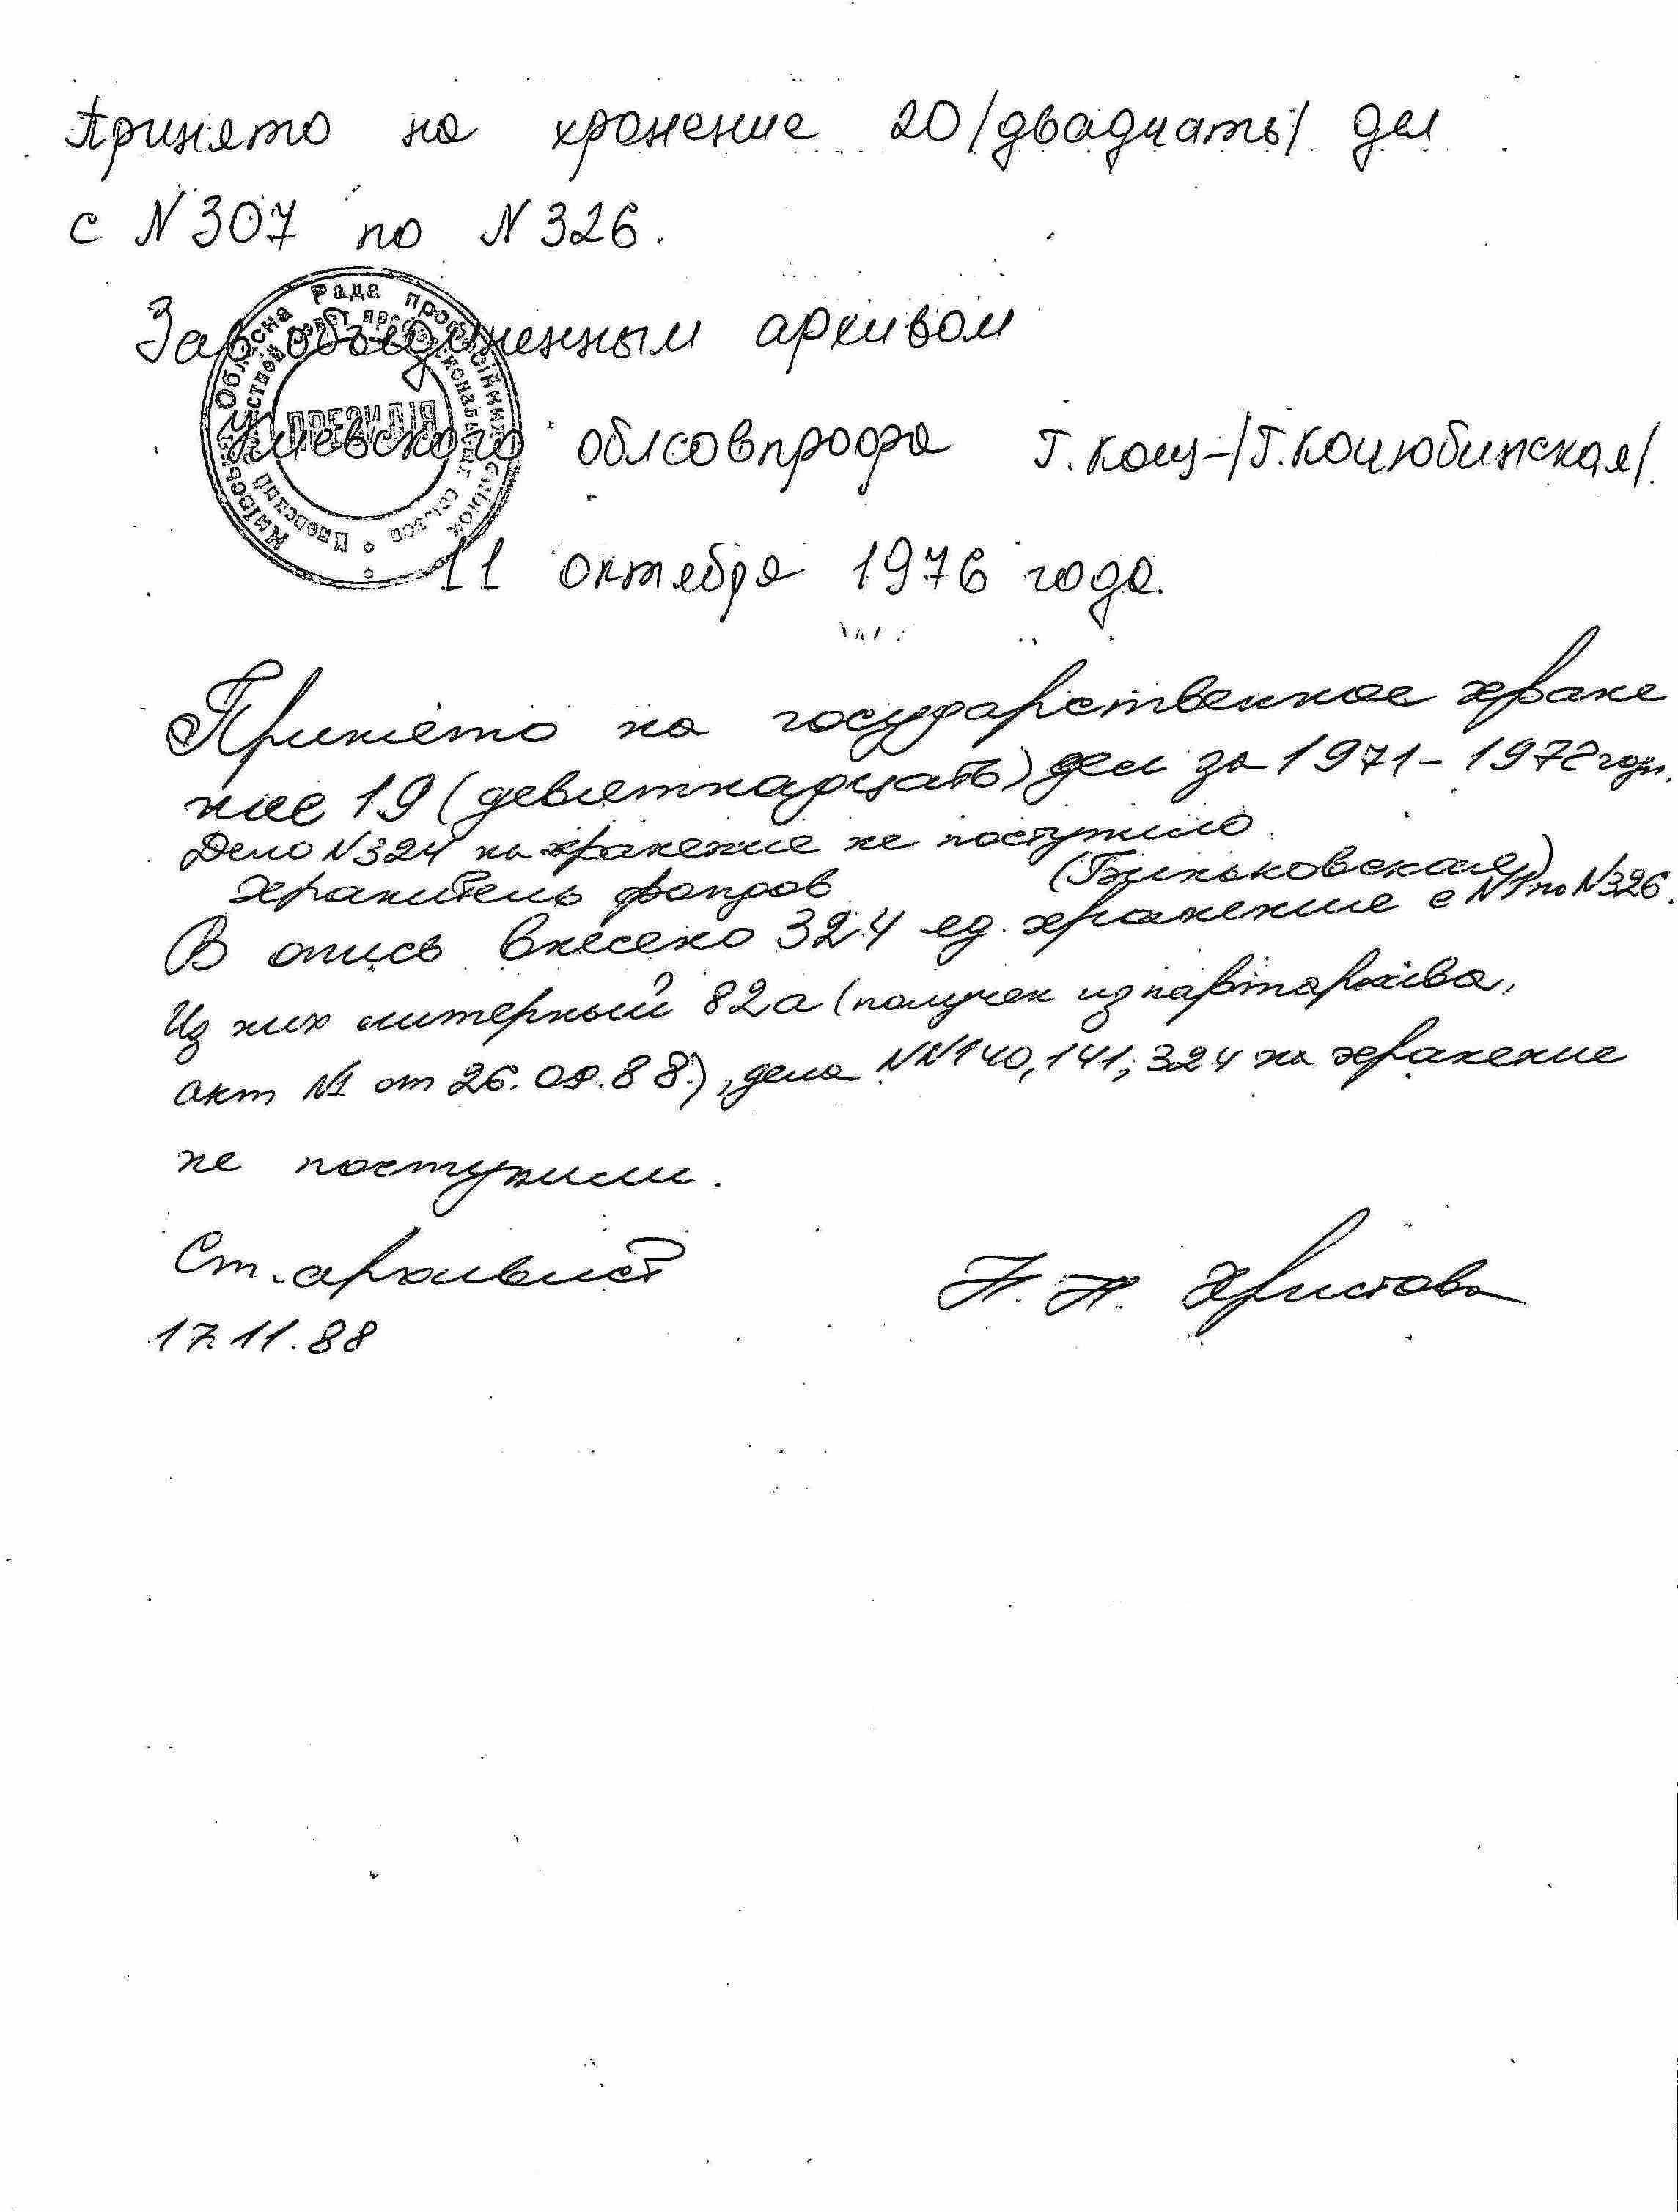 Принято на хранение 20 /двадцать/ дел
с N 307 по N 326.
Зав. объединенным архивом
Киевского облсовпрофа Г. Коц- /Г. Коцюбинская/.
Київська Обласна Рада професійних спілок
Киевский областной совет профессиональных союзов
ПРЕЗИДІЯ
11 октября 1976 года.
Принято на государственное хране
ние 19 (девятнадцать) дел за 1971-1972 годы.
Дело N 324 на хранение не поступило.
Хранитель фондов (Биньковская)
В опись внесено 324 ед. хранение с N 1 по N 326.
Из них литерный 82а (получен из партархива,
акт N1 от 26.09.88.), дела NN 140, 141; 324 на хранение
не поступили.
Ст. архивист Н. Н. Христова
17.11.88